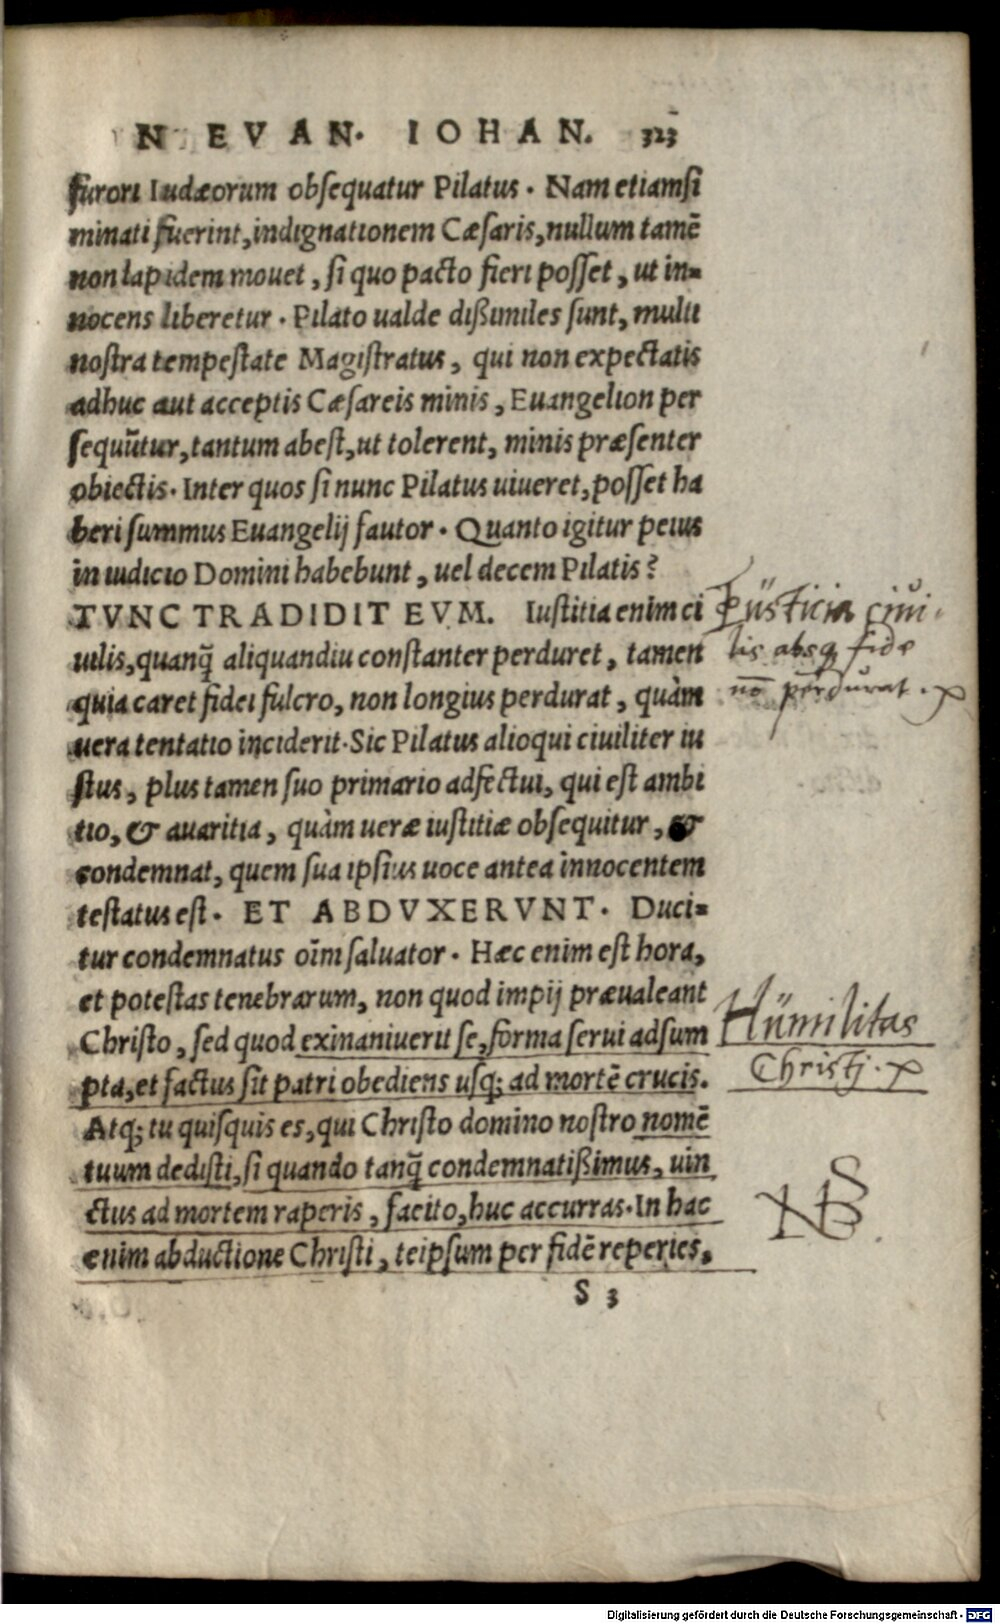 N EVAN. IOHAN. 323
furori Iudæorum obsequatur Pilatus. Nam etiamsi
minati fuerint, indignationem Cæsaris, nullum tamē
non lapidem mouet, si quo pacto fieri posset, ut in=
nocens liberetur. Pilato ualde dißimiles sunt, multi
nostra tempestate Magistratus, qui non expectatis
adhuc aut acceptis Cæsareis minis, Euangelion per
sequūtur, tantum abest, ut tolerent, minis præsenter
obiectis. Inter quos si nunc Pilatus uiueret, posset ha
beri summus Euangelij fautor. Quanto igitur peius
in iudicio Domini habebunt, uel decem Pilatis?
TVNC TRADIDIT EVM. Iustitia enim ci
uilis, quanq̃ aliquandiu constanter perduret, tamen
quia caret fidei fulcro, non longius perdurat, quàm
uera tentatio inciderit. Sic Pilatus alioqui ciuiliter iu
stus, plus tamen suo primario adfectui, qui est ambi
tio, & auaritia, quàm ueræ iustitiæ obsequitur, &
condemnat, quem sua ipsius uoce antea innocentem
testatus est. ET ABDVXERVNT. Duci=
tur condemnatus oīm saluator. Hæc enim est hora,
et potestas tenebrarum, non quod impij præualeant
Christo, sed quod exinaniuerit se, forma serui adsum
pta, et factus sit patri obediens usq; ad mortē crucis.
Atq; tu quisquis es, qui Christo domino nostro nomē
tuum dedisti, si quando tanq̃ condemnatißimus, uin
ctus ad mortem raperis, facito, huc accurras. In hac
enim abductione Christi, teipsum per fidē reperies,
S 3
Iüsticia ciui-
lis absq fide
nō perdurat.
Hümilitas
Christj.
NB
Digitalisierung gefördert durch die Deutsche Forschungsgemeinschaft - DFG